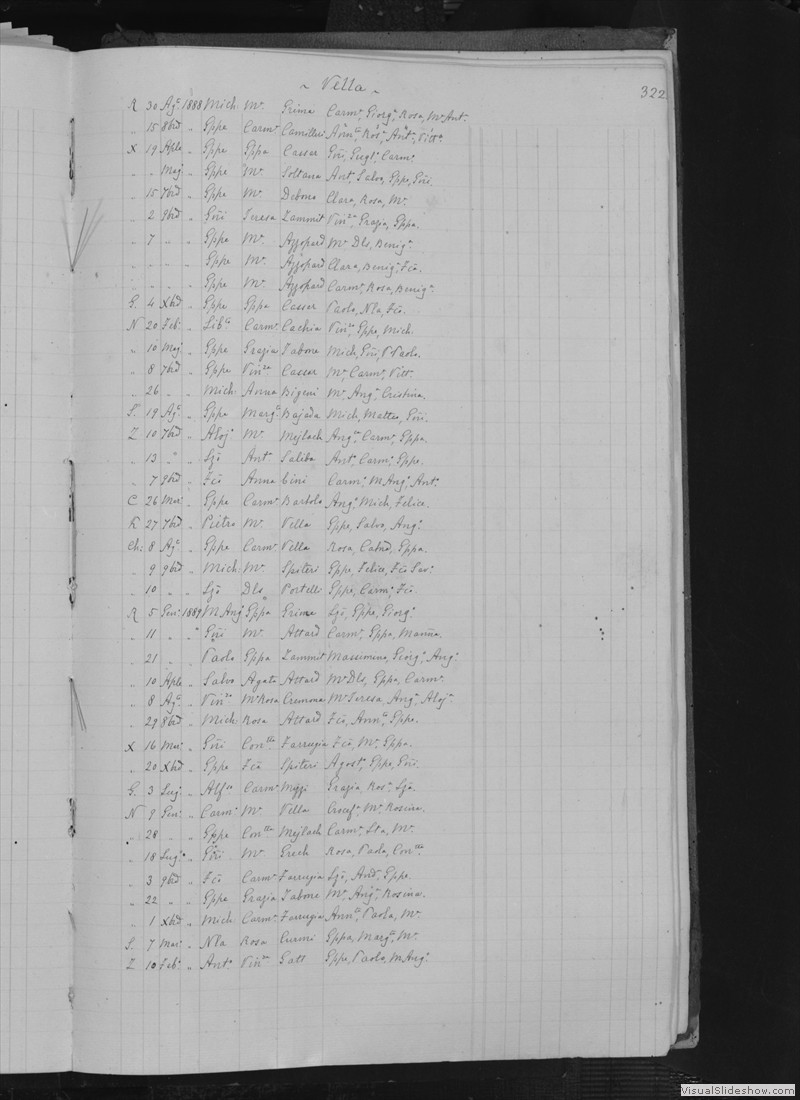 ~ Vella ~
322
R 30 Ag. 1888 Mich. Mª Grima Carmª, Giorgª, Rosa, Mª Ant.
" 15 8bre " Gppe Carmª Camilleri Annª, Rosª, Antª, Vittª
X 19 Aple " Gppe Gppa Cassar Gñi, Carmª
" " Mag. " Gppe Mª Soltana Antª, Salvª, Gppe, Gñi.
" 15 7bre " Gppe Mª Debono Clara, Rosa, Mª
" 2 9bre " Gñi Teresa Zammit Vinza, Grazia, Gppa.
" 7 " " Gppe Mª Azzopard Mª Dls, Benigª
" " " " Gppe Mª Azzopard Clara, Benigª, Fcã.
" " " " Gppe Mª Azzopard Carmª, Rosa, Benigª
G. 4 Xbre " Gppe Gppa Cassar Paolo, Nla, Fcõ.
N 20 Feb. " Libto Carmª Cachia Vinza, Gppe, Mich.
" 10 Mag. " Gppe Grazia Zabone Mich, Gñi, P. Paolo.
" 8 7bre " Gppe Vinza Cassar Mª, Carmª, Vitt.
" 26 " " Mich. Anna Bigeni Mª Angª, Cristina.
S. 19 Ag. " Gppe Margª Bajada Mich, Matteo, Gñi.
Z 10 7bre " Aloj. Mª Mejlach Angla, Carmª, Gppa.
" 13 " " Lzõ Antª Saliba Antª, Carmª, Gppe.
" 7 9bre " Fcõ Anna Cini Carmª, M. Angª, Antª
C 26 Mar. " Gppe Carmª Bartolo Angª, Mich, Felice.
K 27 7bre " Pietro Mª Vella Gppe, Salvo, Angª
Ch. 8 Ag. " Gppe Carmª Vella Rosa, Gppa.
" 9 9bre " Mich. Mª Spiteri Gppe, Felice, Fcõ Sav.
" 10 " " Lzõ Dls Portelli Gppe, Carmª, Fcõ.
R 5 Gen. 1889 M. Ang. Gppa Grima Lzõ, Gppe, Giorg.
" 11 " " Gñi Mª Attard Carmª, Gppa,
" 21 " " Paolo Gppa Zammit Massimino, Giorg., Ang.
" 10 Aple " Salvo Agata Attard Mª Dls, Gppa, Carmª
" 8 Ag. " Vinzo Mª Rosa Cremona Mª Teresa, Angª, Alojª
" 29 8bre " Mich. Rosa Attard Fcõ, Annla, Gppe.
X 16 Mar. " Gñi Conlla Farrugia Fcõ, Mª, Gppa.
" 20 Xbre " Gppe Fcã Spiteri Agost., Gppe, Gñi.
G. 3 Lug. " Alfso Carmª Mizzi Grazia, Rosª, Lzõ.
N 9 Gen. " Carmª Mª Vella Crocef., Mª, Rosina.
" 28 " " Gppe Conlla Mejlach Carmª, Sta, Mª
" 18 Lug. " Gñi Mª Grech Rosa, Paola, Conlla.
" 3 9bre " Fcõ Carmª Farrugia Lzõ, And., Gppe.
" 22 " " Gppe Grazia Zabone Mª, Angª, Rosina.
" 1 Xbre " Mich. Carmª Farrugia Annla, Paola, Mª
S. 7 Mar. " Nla Rosa Curmi Gppa, Margª, Mª
Z 10 Feb. " Antª Vinza Gatt Gppe, Paolo, M. Ang.
VisualSlideshow.com